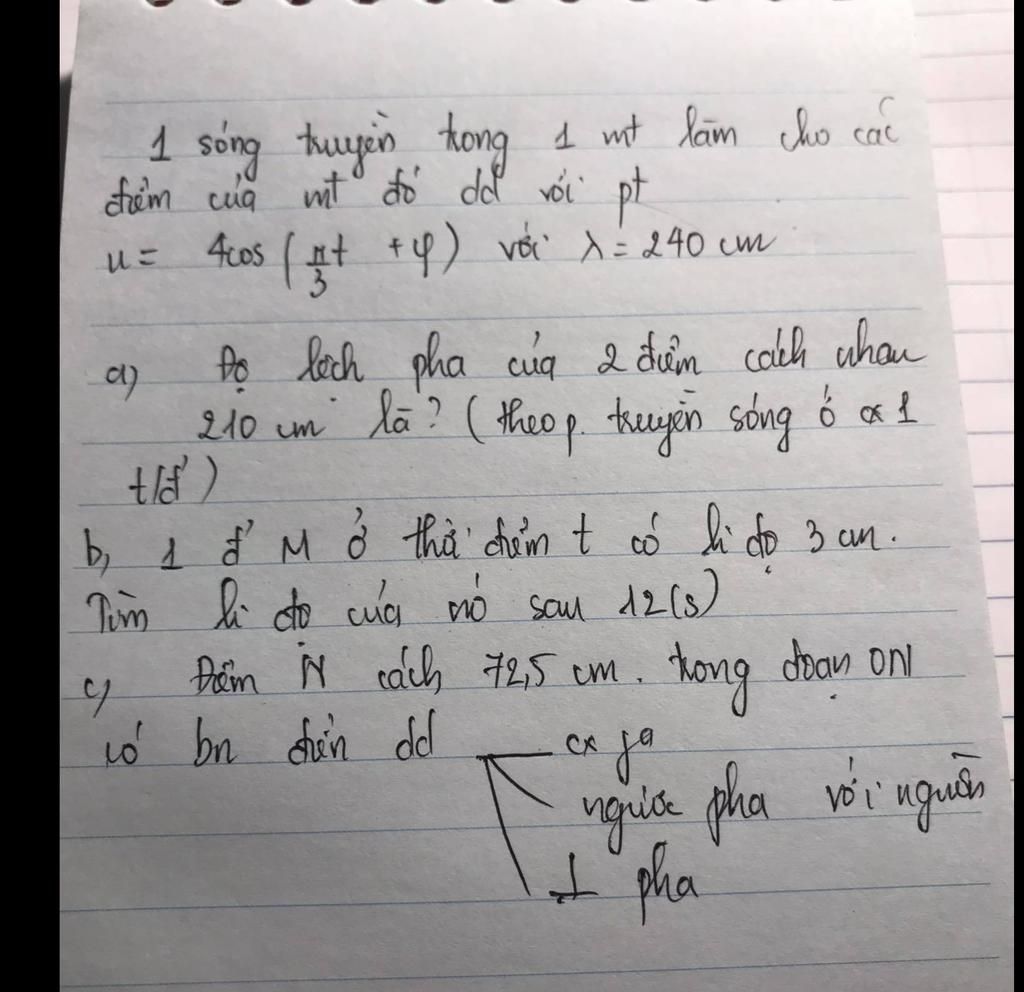 1 sóng truyền trong 1 mt làm cho các
điểm của mt đó dđ với pt
u = 4cos (π/3 t + φ) với λ = 240 cm
a) Độ lệch pha của 2 điểm cách nhau
210 cm là? (theo p. truyền sóng ở cx 1
t/đ')
b, 1 đ' M ở thời điểm t có li độ 3 cm.
Tìm li độ của nó sau 12(s)
c, Điểm N cách 72,5 cm. trong đoạn ON
có bn điểm dđ cx fa
ngược pha với nguồn
⊥ pha